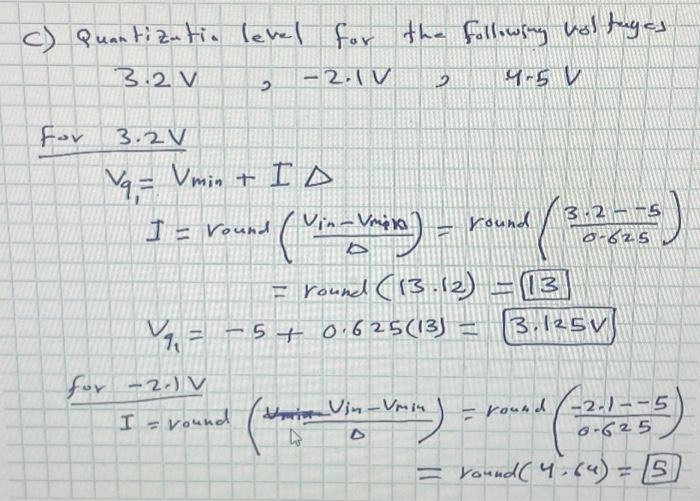 c) Quantizatio level for the following voltages
3.2 V , -2.1 V , 4.5 V
For 3.2 V
Vq₁ = Vmin + I Δ
I = round ( (Vin - Vmin) / Δ ) = round ( (3.2 - -5) / 0.625 )
= round (13.12) = 13
Vq₁ = -5 + 0.625(13) = 3.125V
for -2.1 V
I = round ( (Vin - Vmin) / Δ ) = round ( (-2.1 - -5) / 0.625 )
= round(4.64) = 5